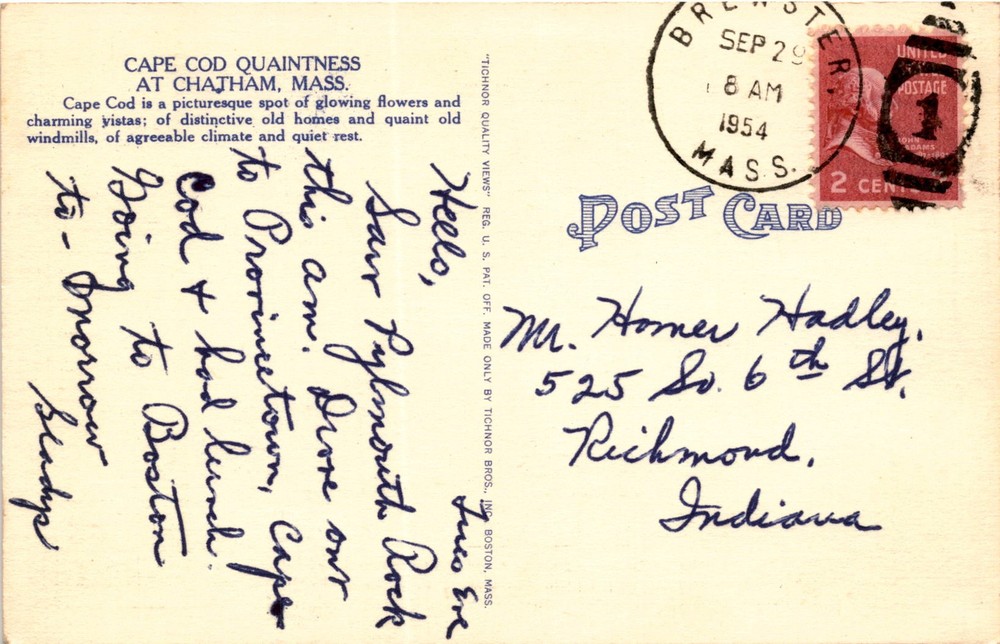 CAPE COD QUAINTNESS
AT CHATHAM, MASS.
Cape Cod is a picturesque spot of glowing flowers and
charming vistas; of distinctive old homes and quaint old
windmills, of agreeable climate and quiet rest.
Tues Eve
Hello,
Saw Pylmouth Rock
this am. Drove out
to Provincetown, Cape
Cod + had lunch.
Going to Boston
to-morrow
Gladys
"TICHNOR QUALITY VIEWS" REG. U. S. PAT. OFF. MADE ONLY BY TICHNOR BROS., INC. BOSTON, MASS.
BREWSTER,
SEP 29
8 AM
1954
MASS.
UNITED
STATES
POSTAGE
1
JOHN
ADAMS
2 CENTS
POST CARD
Mr. Homer Hadley,
525 So. 6th St,
Richmond,
Indiana